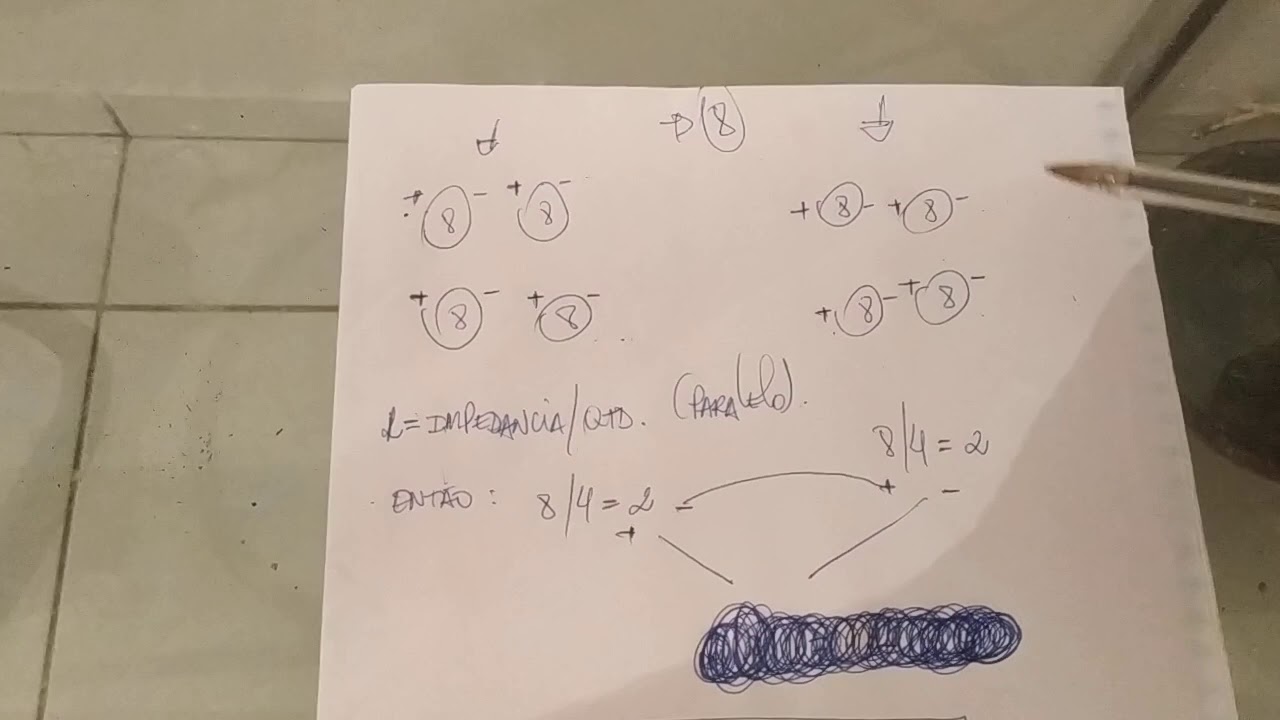 → (8)
+ 8 - + 8 - + 8 - + 8 -
+ 8 - + 8 - + 8 - + 8 -
= IMPEDANCIA/QTD. (PARALELO).
8/4 = 2
ENTÃO: 8/4 = 2 - + -
+